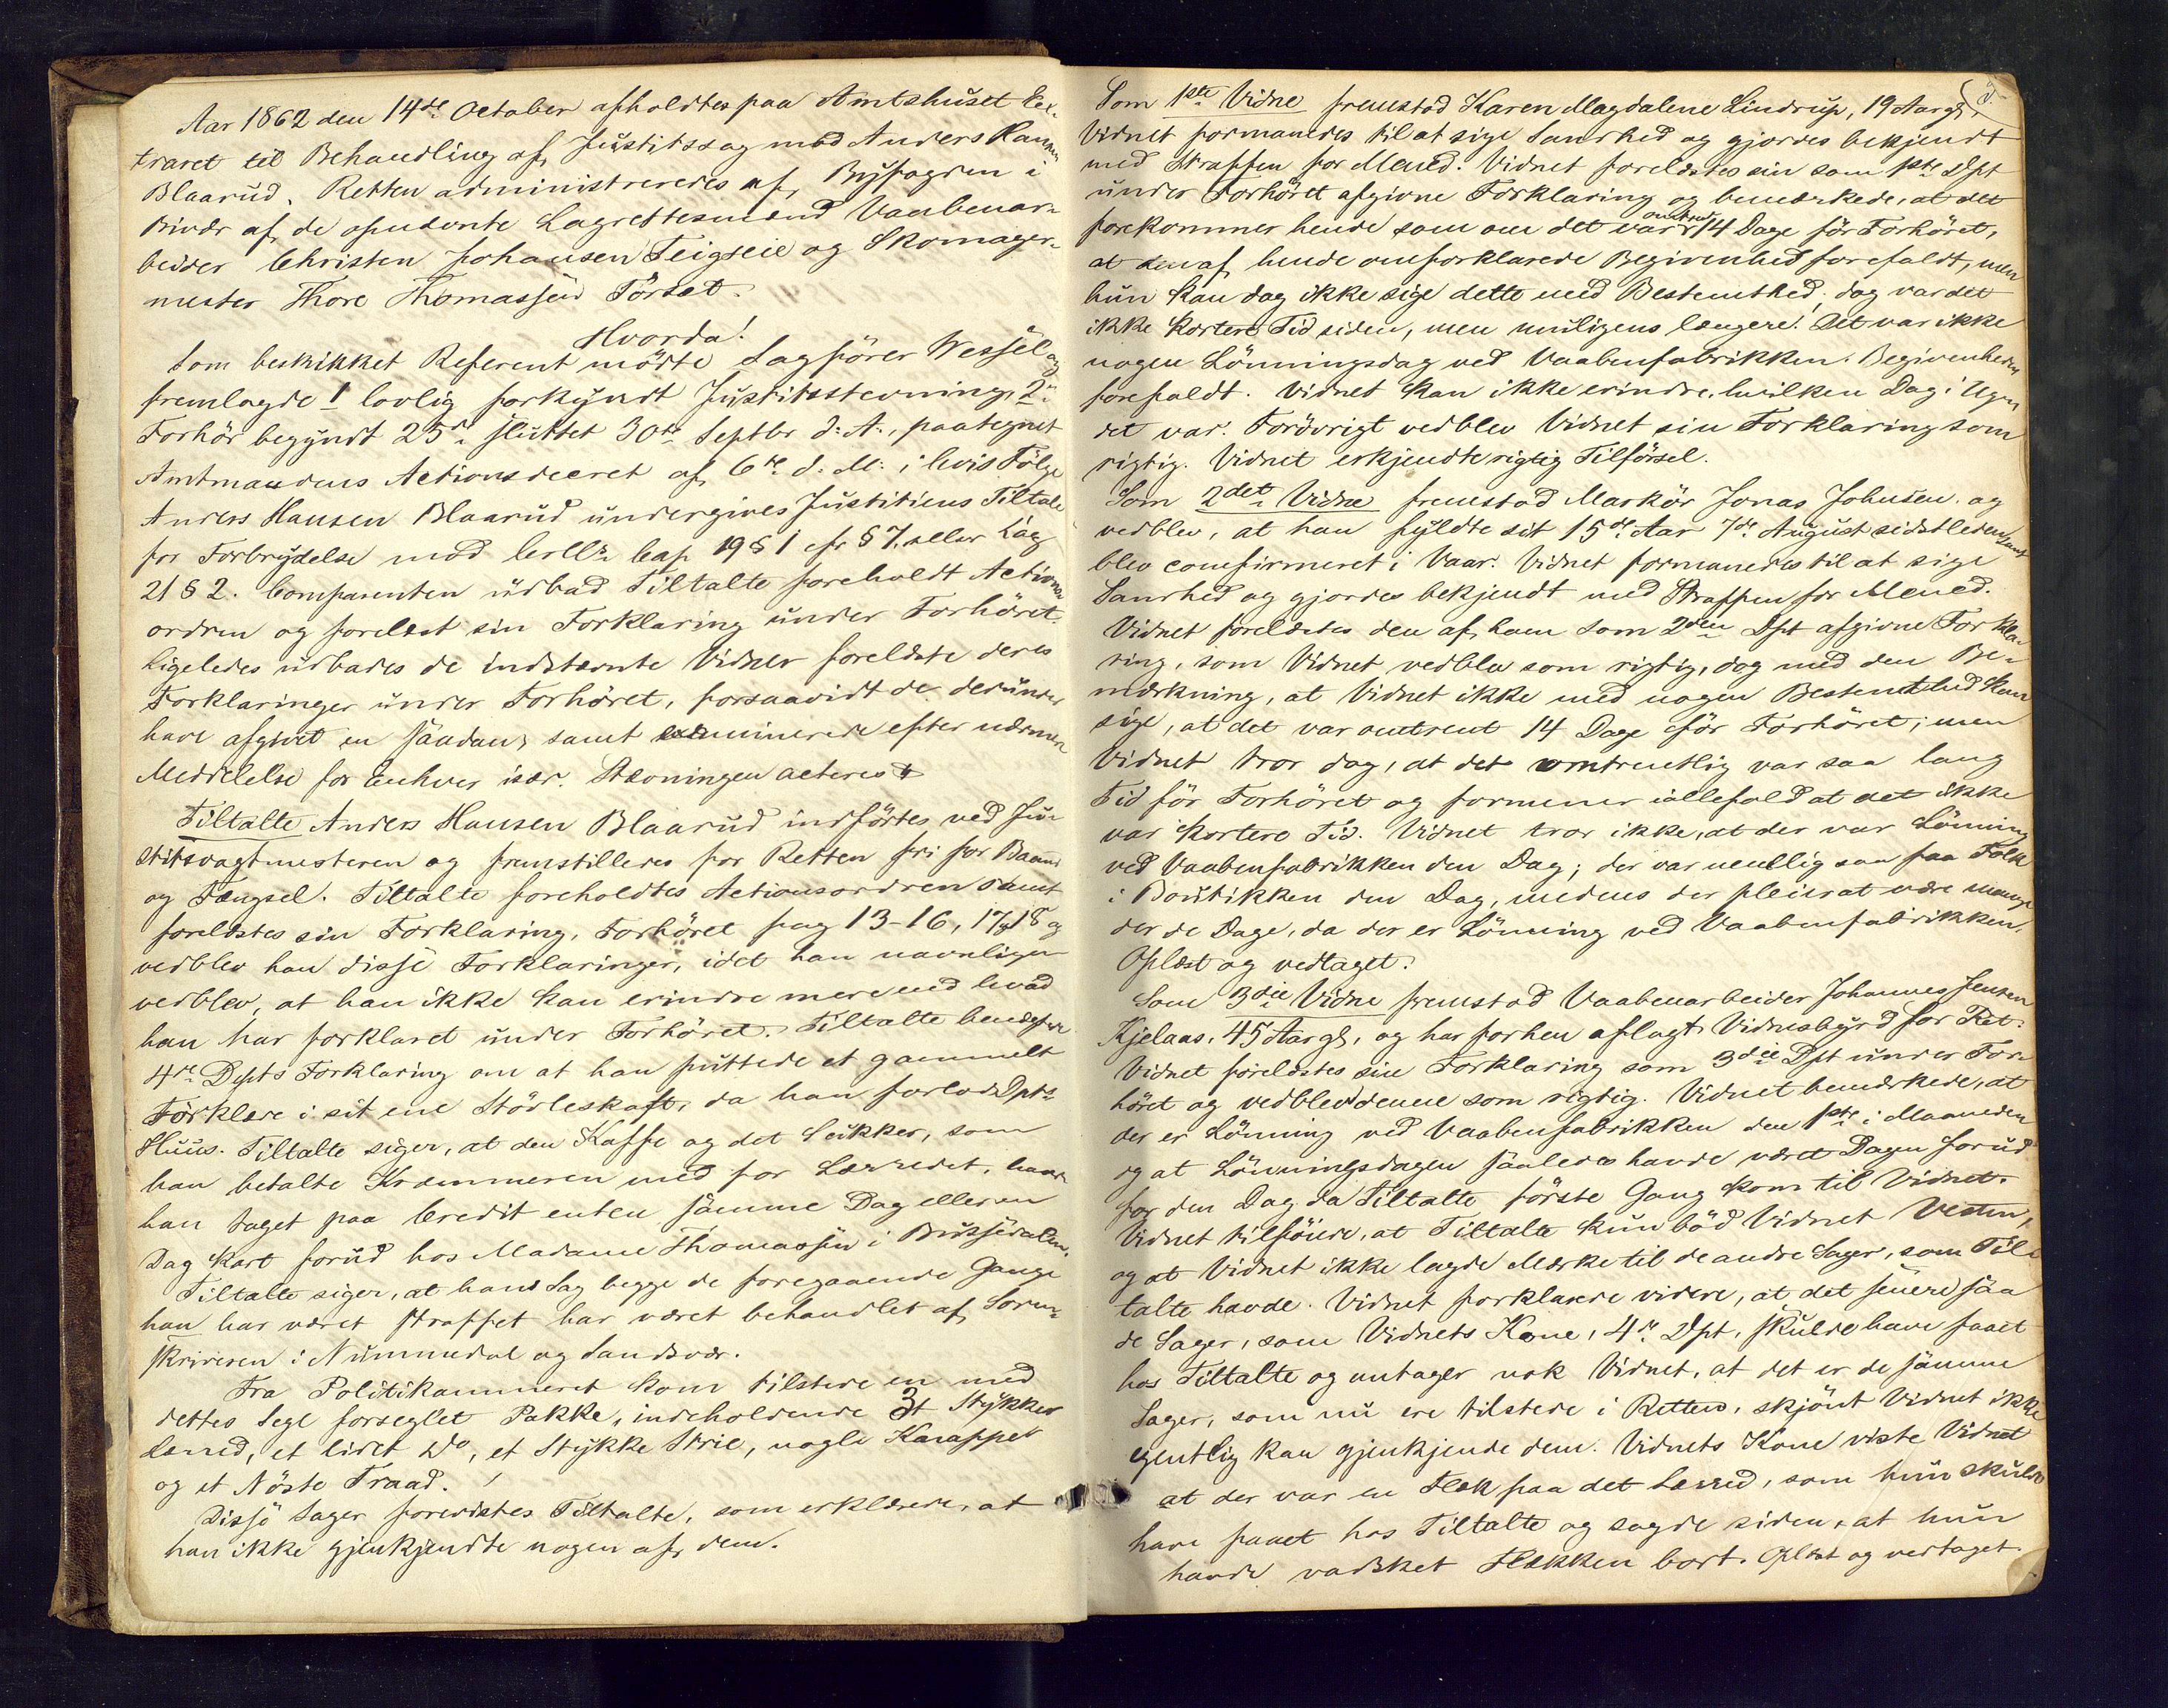 Aar 1862 den 14de October afholdtes paa Amtshuset Ex-
traret til Behandling af Justitssag mod Anders Hansen
Blaarud. Retten administreredes af Byfogden i
Bivær af de opnævnte Lagrettesmænd Vaabenar-
beider Christen Johansen Teigseie og Skomager-
mester Thore Thomassen Törset.
Hvorda!
Som beskikket Referent mötte Sagförer Wessel og
fremlagde 1 lovlig forkyndt Justitsstevning, 2.
Forhör begyndt 25de sluttet 30te Septbr d: A:, paategnet
Amtmandens Actionsdecret af 6te d: M: i hvis Fölge
Anders Hansen Blaarud undergives Justitiens Tiltale
for Forbrydelse mod Crll: Cap 19 § 1 cfr § 7, eller Cap
21 § 2. Comparenten udbad Tiltalte foreholdt Actions
ordren og forelæst sin Forklaring under Forhöret.
Ligeledes udbades de indstævnte Vidner forelæste deres
Forklaringer under Forhöret, forsaavidt de derunder
have afgivet en saadan, samt examinerede efter nærmere
Meddelelse for Enhver især. Stævningen acteres
Tiltalte Anders Hansen Blaarud indförtes ved Ju-
stitsvagtmesteren og fremstilledes for Retten fri for Baand
og Fængsel. Tiltalte foreholdtes Actionsordren samt
forelæstes sin Forklaring, Forhöret pag 13-16, 17, 18 og
vedblev han disse Forklaringer, idet han navnligen
vedblev, at han ikke kan erindre mere end hvad
han har forklaret under Forhöret. Tiltalte benægtede
4de Depts Forklaring om at han puttede et gammelt
Förklæe i sit ene Stövleskaft, da han forlod Dpts
Huus. Tiltalte siger, at den Kaffe og det Sukker, som
han betalte Kræmmeren med for Lærredet, havde
han taget paa Credit enten samme Dag eller en
Dag kort forud hos Madame Thomassen i
Tiltalte siger, at hans Sag begge de foregaaende Gange
han har været straffet har været behandlet af Soren-
skriveren i Nummedal og Sandsvær.
Fra Politikammeret kom tilstede en med
dettes Segl forseglet Pakke, indeholdende 3 Stykker
Lærred, et lidet Do, et Stykke Strie, nogle Knapper
og et Nöste Traad.
Disse Sager forevistes Tiltalte, som erklærede, at
han ikke gjenkjendte nogen af dem.
Som 1ste Vidne fremstod Karen Magdalene Lindrup, 19 Aar gl.
Vidnet formanedes til at sige Sandhed og gjordes bekjendt
med Straffen for Mened. Vidnet forelæstes sin som 1ste Dpt
under Forhöret afgivne Forklaring og bemærkede, at det
forekommer hende som om det var omtrent 14 Dage för Forhöret,
at den af hende omforklarede Begivenhed forefaldt, men
hun kan dog ikke sige dette med Bestemthed; dog var det
ikke kortere Tid siden, men muligens længere. Det var ikke
nogen Lönningsdag ved Vaabenfabrikken. Begivenheden
forefaldt. Vidnet kan ikke erindre, hvilken Dag i Ugen
det var. Forövrigt vedblev Vidnet sin Forklaring som
rigtig. Vidnet erkjendte rigtig Tilförsel.
Som 2det Vidne fremstod Markör Jonas Johnsen og
vedblev, at han fyldte sit 15de Aar 7de August sidstleden samt
blev confirmeret i Vaar. Vidnet formanedes til at sige
Sandhed og gjordes bekjendt med Straffen for Mened.
Vidnet forelæstes den af ham som 2den Dpt afgivne Forkla-
ring, som Vidnet vedblev som rigtig, dog med den Be-
mærkning, at Vidnet ikke med nogen Bestemthed kan
sige, at det var omtrent 14 Dage för Forhöret; men
Vidnet tror dog, at det omtrentlig var saa lang
Tid för Forhöret og formener iallefald at det ikke
var kortere Tid. Vidnet tror ikke, at der var Lönning
ved Vaabenfabrikken den Dag; der var nemlig saa faa Folk
i Boutikken den Dag, medens der pleier at være mange
der de Dage, da der er Lönning ved Vaabenfabrikken.
Oplæst og vedtaget.
Som 3die Vidne fremstod Vaabenarbeider Johannes Jensen
Kjelaas, 45 Aar gl, og har forhen aflagt Vidnesbyrd for Ret.
Vidnet forelæstes sin Forklaring som 3die Dpt under For-
höret og vedblev denne som rigtig. Vidnet bemærkede, at
der er Lönning ved Vaabenfabrikken den 1ste i Maaneden
og at Lönningsdagen saaledes havde været Dagen forud
for den Dag da Tiltalte förste Gang kom til Vidnet.
Vidnet tilföiede, at Tiltalte kun böd Vidnet Vesten,
og at Vidnet ikke lagde Mærke til de andre Sager, som Til-
talte havde. Vidnet forklarede videre, at det senere saa
de Sager, som Vidnets Kone, 4de Dpt, skulde have faaet
hos Tiltalte og antager nok Vidnet, at det er de samme
Sager, som nu ere tilstede i Retten, skjönt Vidnet ikke
egentlig kan gjenkjende dem. Vidnets Kone viste Vidnet
at der var en Flæk paa det Lærred, som hun skulde
have faaet hos Tiltalte og sagde siden, at hun
havde vadsket Flækken bort. Oplæst og vedtaget.